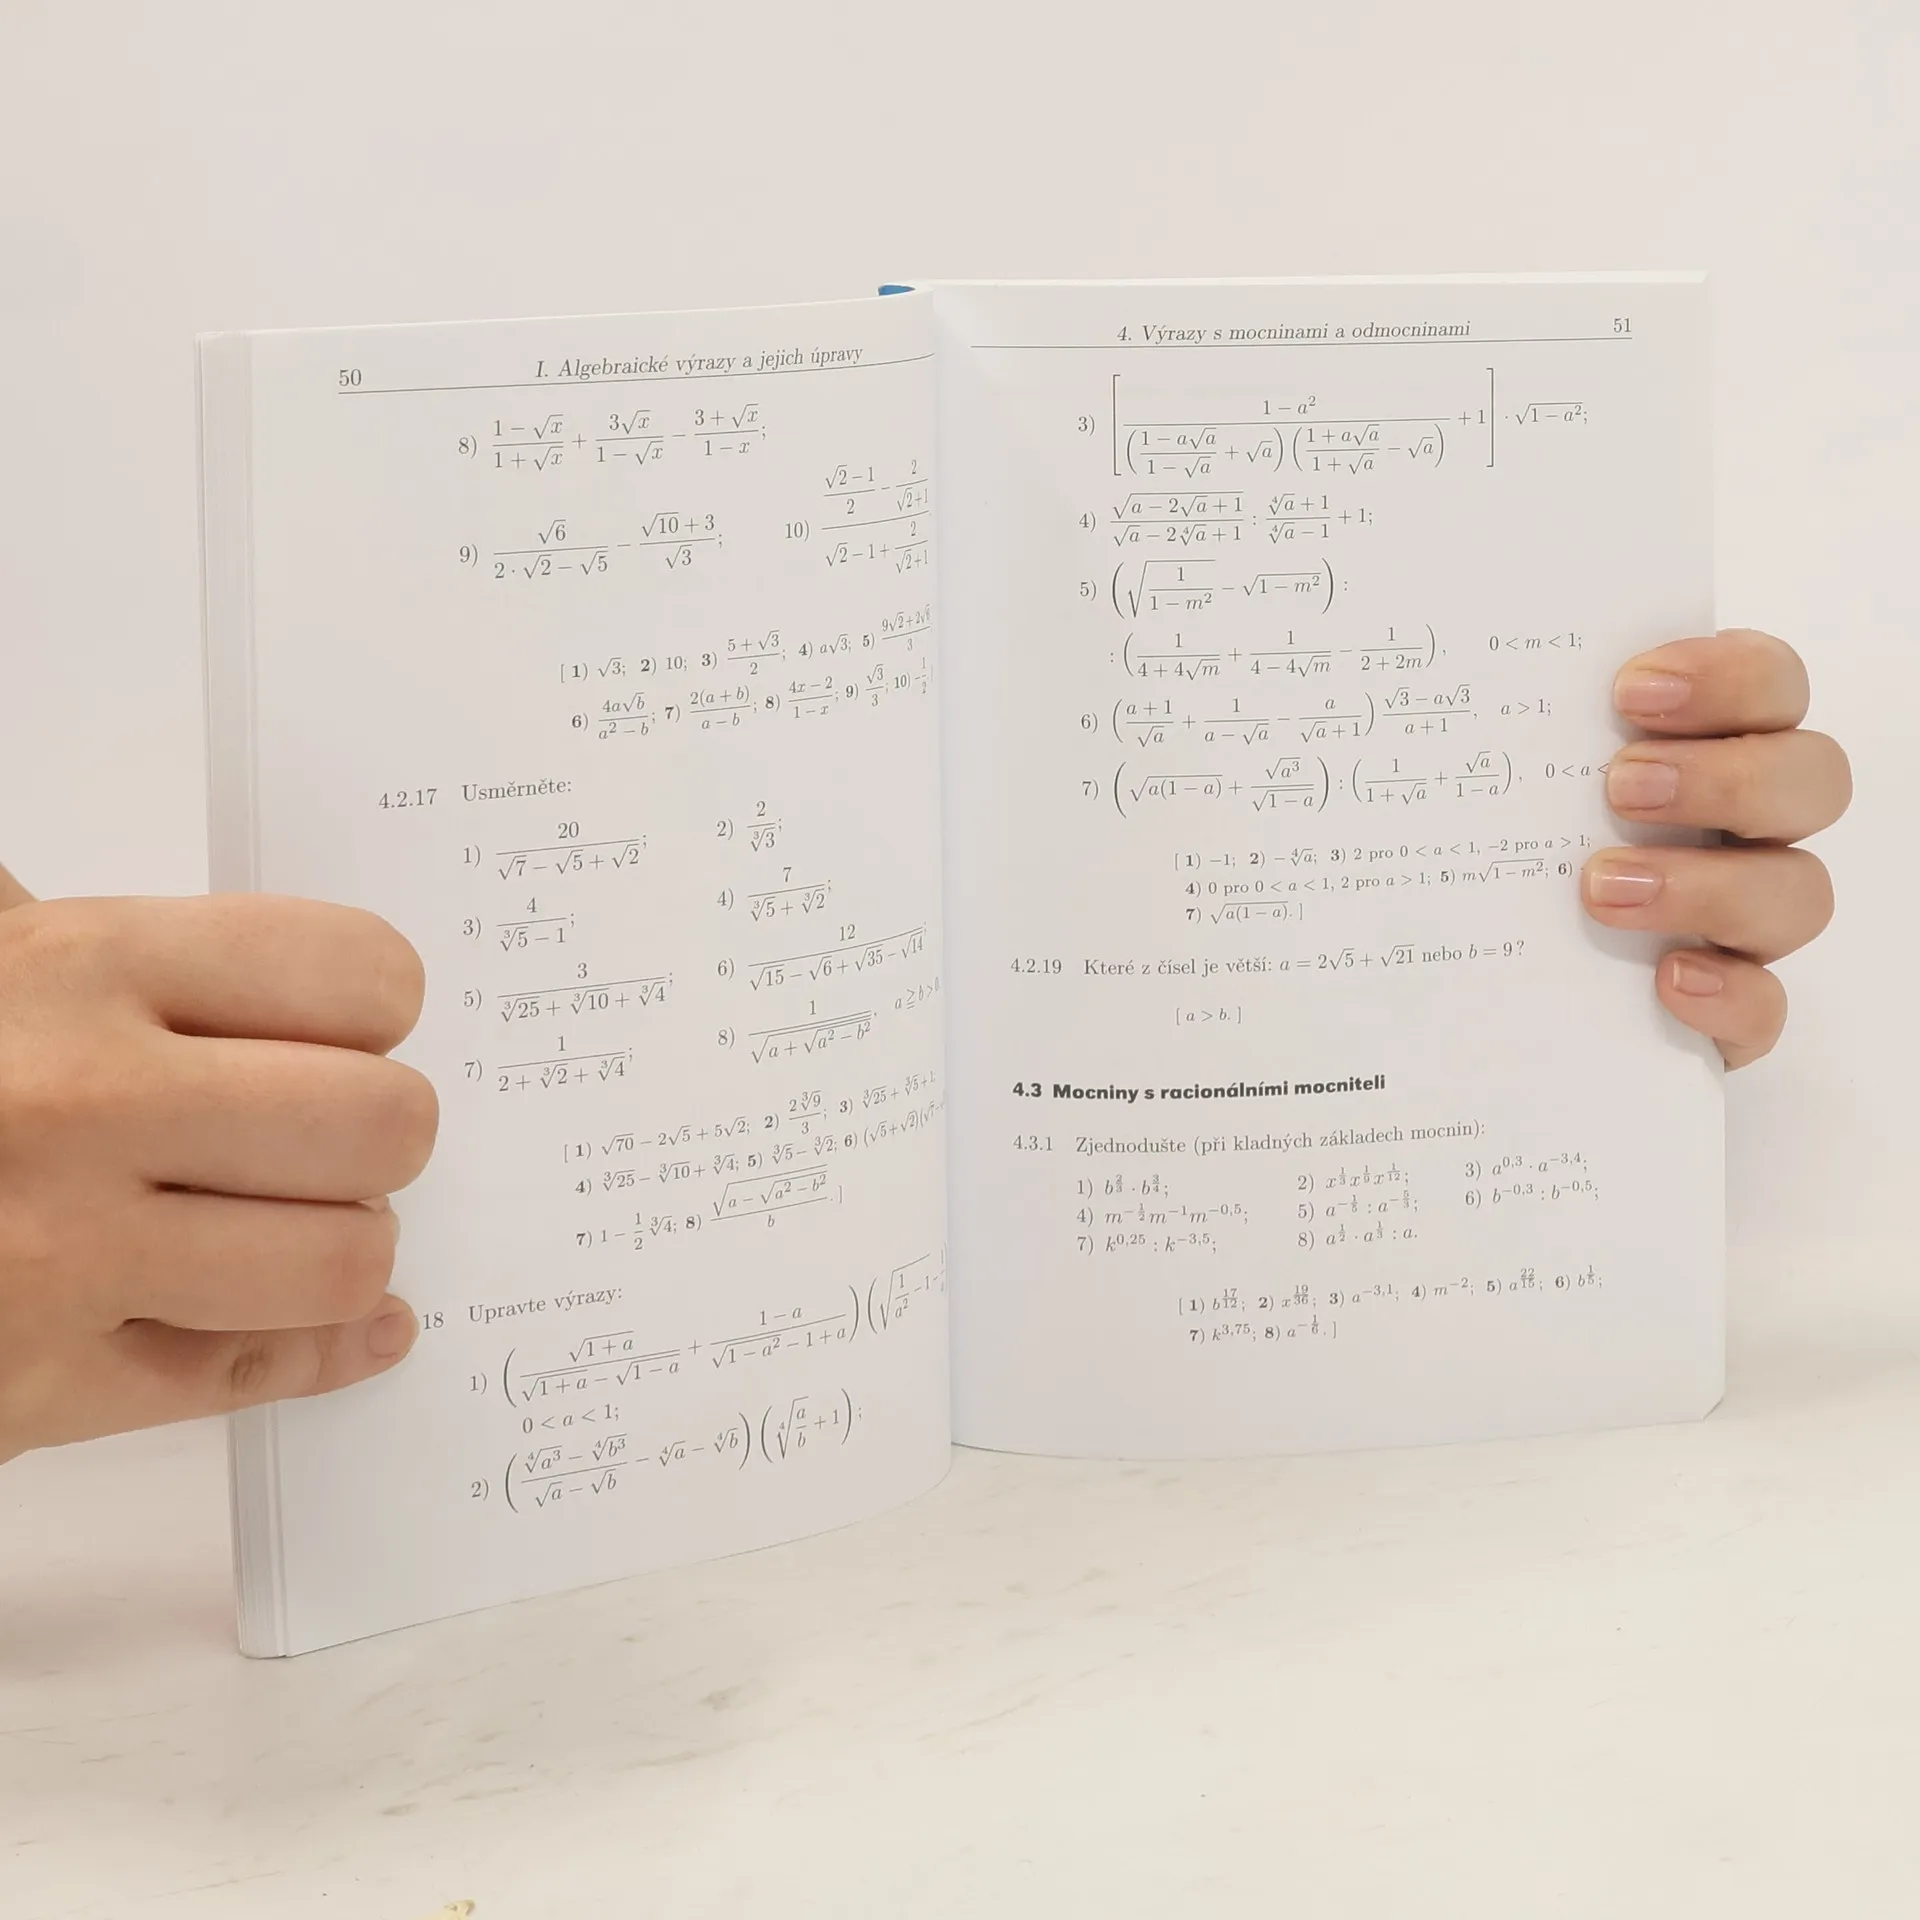 50 I. Algebraické výrazy a jejich úpravy
8) \frac{1-\sqrt{x}}{1+\sqrt{x}} + \frac{3\sqrt{x}}{1-\sqrt{x}} - \frac{3+\sqrt{x}}{1-x};
9) \frac{\sqrt{6}}{2\cdot\sqrt{2}-\sqrt{5}} - \frac{\sqrt{10}+3}{\sqrt{3}}; 10) \frac{\frac{\sqrt{2}-1}{2}-\frac{2}{\sqrt{2}+1}}{\sqrt{2}-1+\frac{2}{\sqrt{2}+1}}
[ 1) √3; 2) 10; 3) \frac{5+\sqrt{3}}{2}; 4) a√3; 5) \frac{9\sqrt{2}+2\sqrt{6}}{3}
6) \frac{4a\sqrt{b}}{a^2-b}; 7) \frac{2(a+b)}{a-b}; 8) \frac{4x-2}{1-x}; 9) \frac{\sqrt{3}}{3}; 10) -\frac{1}{2}.]
4.2.17 Usměrněte:
1) \frac{20}{\sqrt{7}-\sqrt{5}+\sqrt{2}}; 2) \frac{2}{\sqrt[3]{3}};
3) \frac{4}{\sqrt[3]{5}-1}; 4) \frac{7}{\sqrt[3]{5}+\sqrt[3]{2}};
5) \frac{3}{\sqrt[3]{25}+\sqrt[3]{10}+\sqrt[3]{4}}; 6) \frac{12}{\sqrt{15}-\sqrt{6}+\sqrt{35}-\sqrt{14}};
7) \frac{1}{2+\sqrt[3]{2}+\sqrt[3]{4}}; 8) \frac{1}{\sqrt{a+\sqrt{a^2-b^2}}}, a ≧ b > 0.
[ 1) √70 − 2√5 + 5√2; 2) \frac{2\sqrt[3]{9}}{3}; 3) ∛25 + ∛5 + 1;
4) ∛25 − ∛10 + ∛4; 5) ∛5 − ∛2; 6) (√5 + √2)(√7 −
7) 1 − \frac{1}{2} ∛4; 8) \frac{\sqrt{a-\sqrt{a^2-b^2}}}{b}. ]
18 Upravte výrazy:
1) \left(\frac{\sqrt{1+a}}{\sqrt{1+a}-\sqrt{1-a}} + \frac{1-a}{\sqrt{1-a^2}-1+a}\right)\left(\sqrt{\frac{1}{a^2}-1}-
0 < a < 1;
2) \left(\frac{\sqrt[4]{a^3}-\sqrt[4]{b^3}}{\sqrt{a}-\sqrt{b}} - \sqrt[4]{a} - \sqrt[4]{b}\right)\left(\sqrt[4]{\frac{a}{b}}+1\right);
4. Výrazy s mocninami a odmocninami 51
3) \left[\frac{1-a^2}{\left(\frac{1-a\sqrt{a}}{1-\sqrt{a}}+\sqrt{a}\right)\left(\frac{1+a\sqrt{a}}{1+\sqrt{a}}-\sqrt{a}\right)}+1\right]\cdot\sqrt{1-a^2};
4) \frac{\sqrt{a-2\sqrt{a}+1}}{\sqrt{a}-2\sqrt[4]{a}+1} : \frac{\sqrt[4]{a}+1}{\sqrt[4]{a}-1} + 1;
5) \left(\sqrt{\frac{1}{1-m^2}} - \sqrt{1-m^2}\right) :
: \left(\frac{1}{4+4\sqrt{m}} + \frac{1}{4-4\sqrt{m}} - \frac{1}{2+2m}\right), 0 < m < 1;
6) \left(\frac{a+1}{\sqrt{a}} + \frac{1}{a-\sqrt{a}} - \frac{a}{\sqrt{a}+1}\right) \frac{\sqrt{3}-a\sqrt{3}}{a+1}, a > 1;
7) \left(\sqrt{a(1-a)} + \frac{\sqrt{a^3}}{\sqrt{1-a}}\right) : \left(\frac{1}{1+\sqrt{a}} + \frac{\sqrt{a}}{1-a}\right), 0 < a <
[ 1) −1; 2) −∜a; 3) 2 pro 0 < a < 1, −2 pro a > 1;
4) 0 pro 0 < a < 1, 2 pro a > 1; 5) m√(1 − m²); 6)
7) √(a(1 − a)). ]
4.2.19 Které z čísel je větší: a = 2√5 + √21 nebo b = 9?
[ a > b. ]
4.3 Mocniny s racionálními mocniteli
4.3.1 Zjednodušte (při kladných základech mocnin):
1) b^{\frac{2}{3}} · b^{\frac{3}{4}}; 2) x^{\frac{1}{3}} x^{\frac{1}{9}} x^{\frac{1}{12}}; 3) a^{0,3} · a^{−3,4};
4) m^{-\frac{1}{2}} m^{−1} m^{−0,5}; 5) a^{-\frac{1}{5}} : a^{-\frac{5}{3}}; 6) b^{−0,3} : b^{−0,5};
7) k^{0,25} : k^{−3,5}; 8) a^{\frac{1}{2}} · a^{\frac{1}{3}} : a.
[ 1) b^{\frac{17}{12}}; 2) x^{\frac{19}{36}}; 3) a^{−3,1}; 4) m^{−2}; 5) a^{\frac{22}{15}}; 6) b^{\frac{1}{5}};
7) k^{3,75}; 8) a^{-\frac{1}{6}}. ]